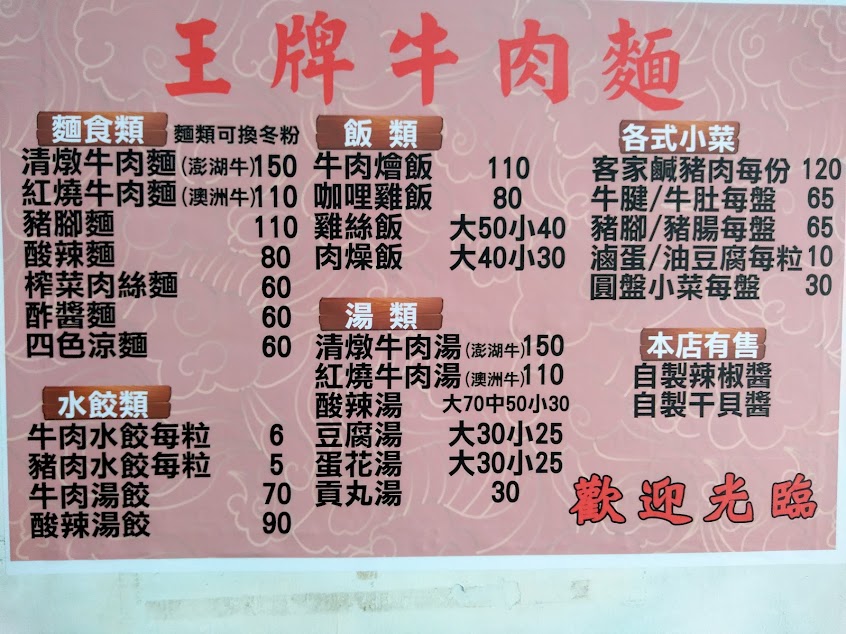 王牌牛肉麵
麵食類 麵類可換冬粉
清燉牛肉麵(澎湖牛)150
紅燒牛肉麵(澳洲牛)110
豬腳麵 110
酸辣麵 80
榨菜肉絲麵 60
酢醬麵 60
四色涼麵 60
水餃類
牛肉水餃每粒 6
豬肉水餃每粒 5
牛肉湯餃 70
酸辣湯餃 90
飯類
牛肉燴飯 110
咖哩雞飯 80
雞絲飯 大50小40
肉燥飯 大40小30
湯類
清燉牛肉湯(澎湖牛)150
紅燒牛肉湯(澳洲牛)110
酸辣湯 大70中50小30
豆腐湯 大30小25
蛋花湯 大30小25
貢丸湯 30
各式小菜
客家鹹豬肉每份 120
牛腱/牛肚每盤 65
豬腳/豬腸每盤 65
滷蛋/油豆腐每粒 10
圓盤小菜每盤 30
本店有售
自製辣椒醬
自製干貝醬
歡迎光臨